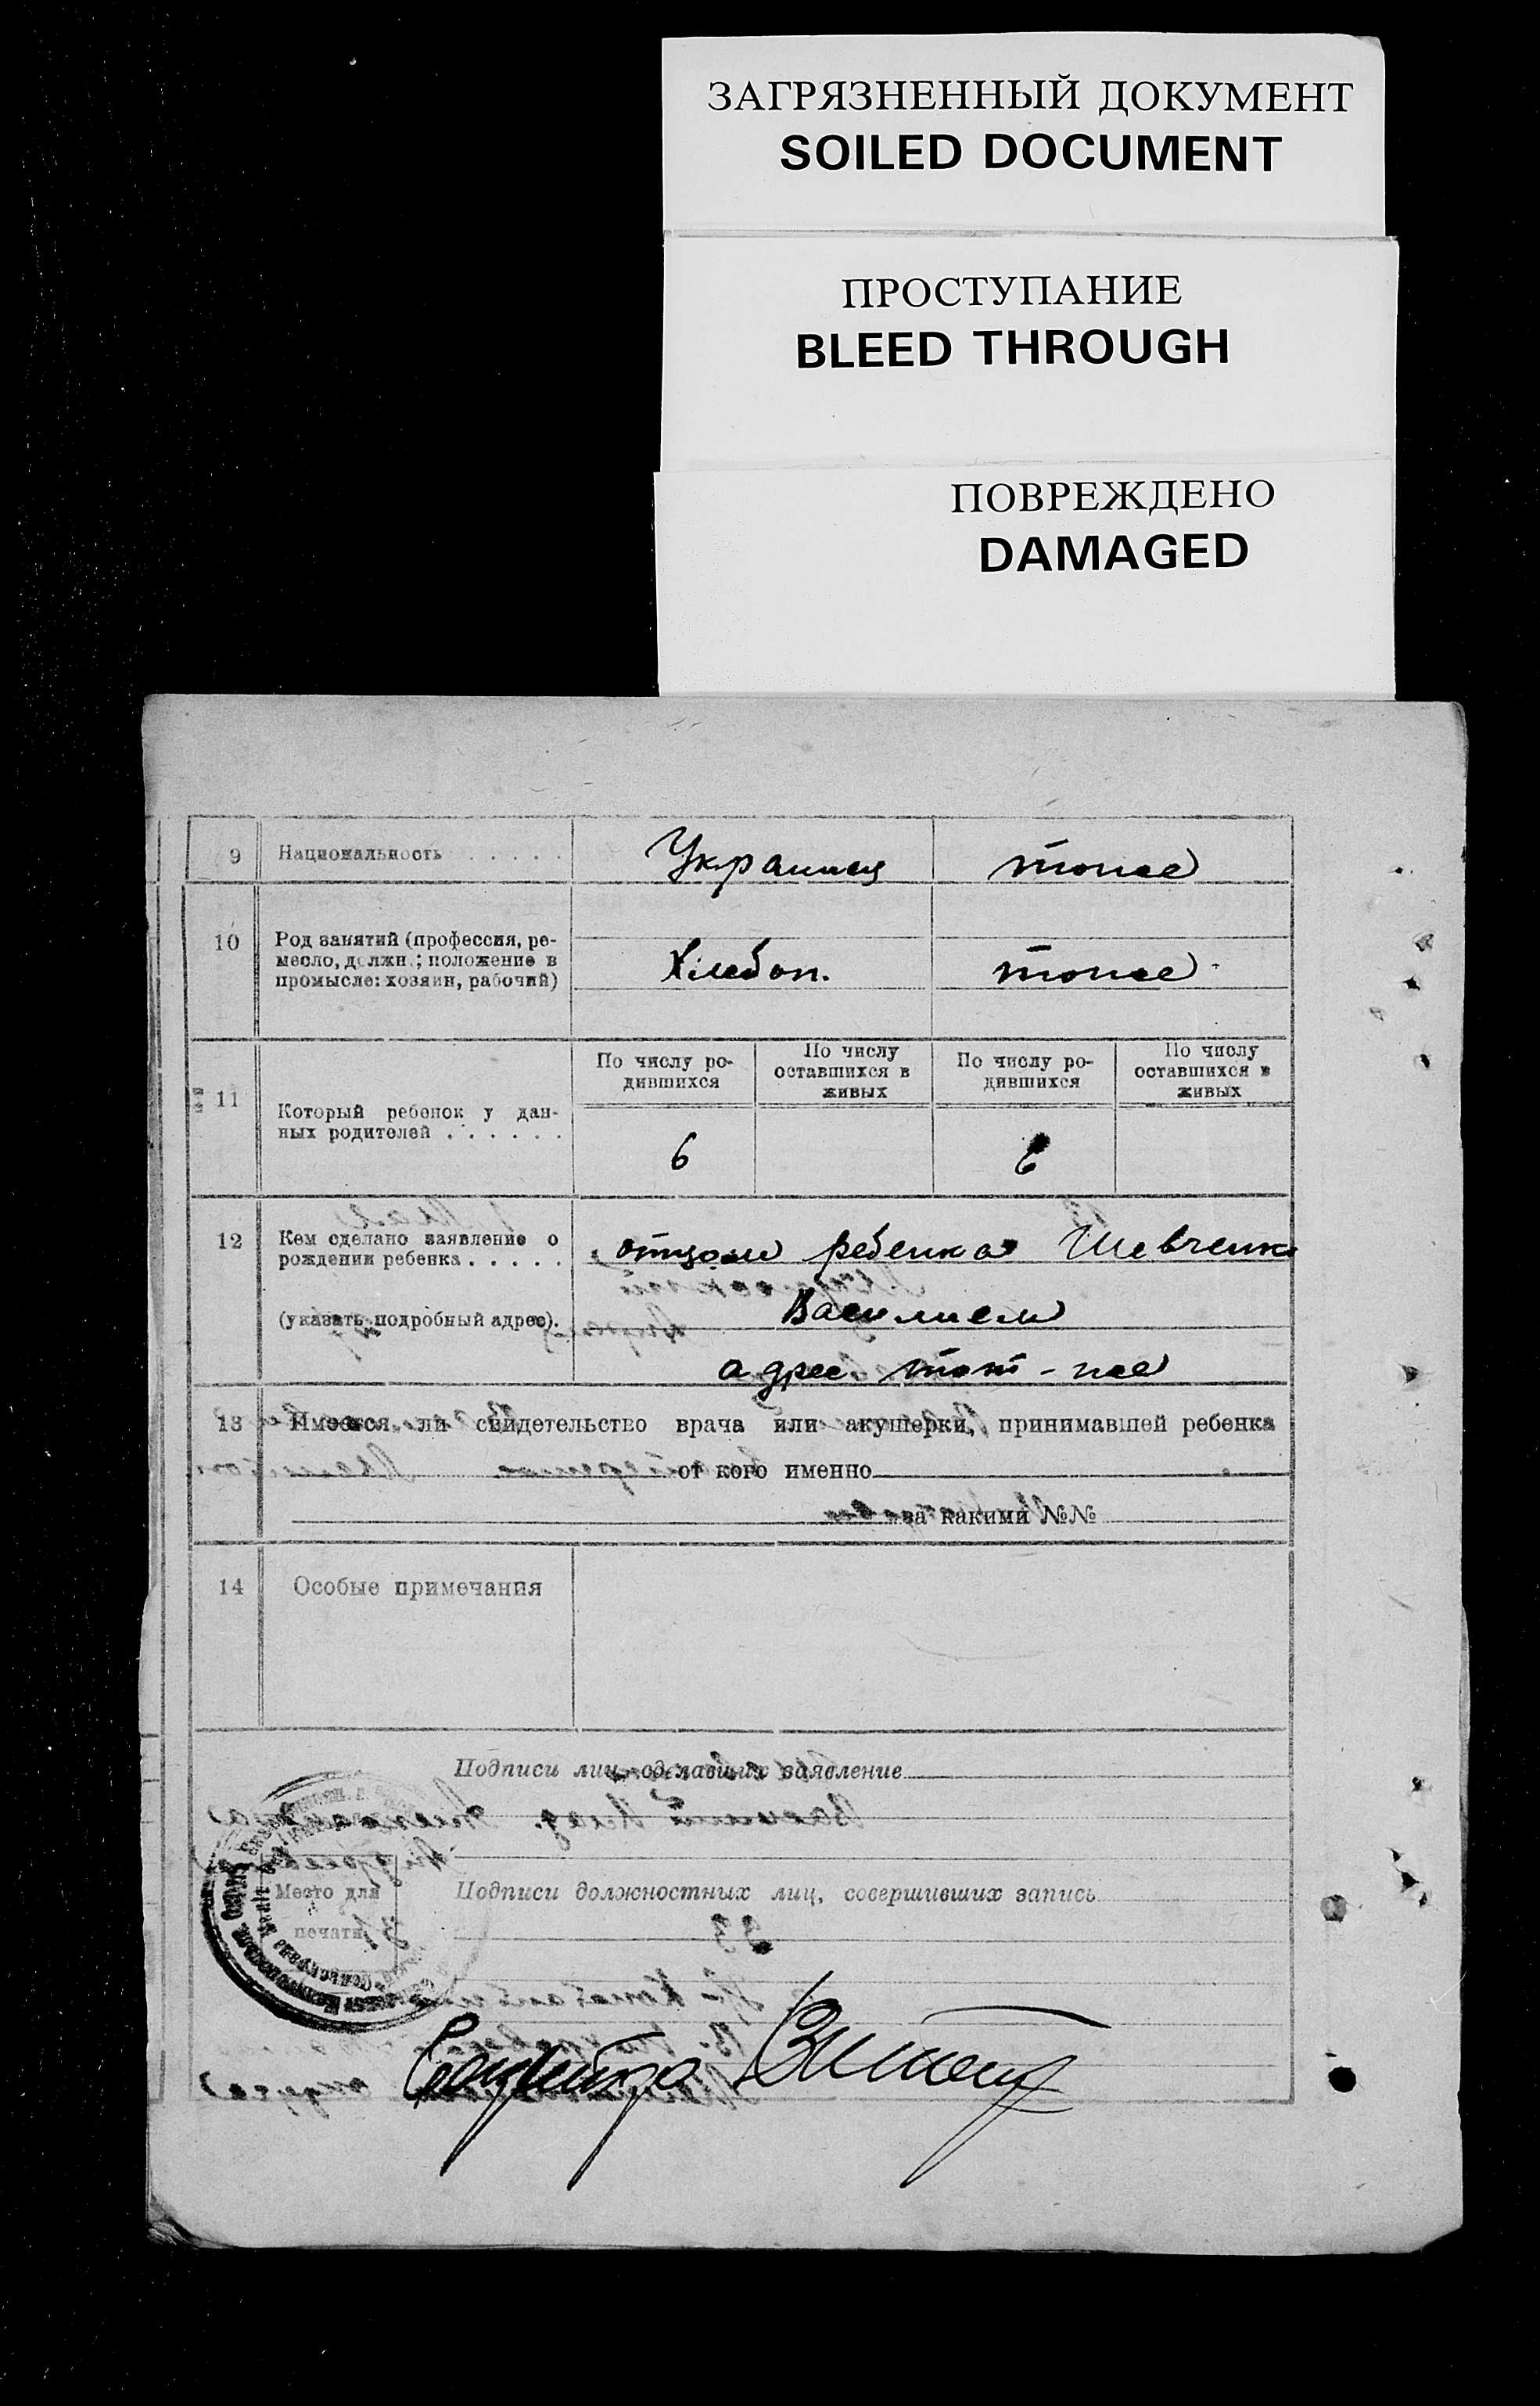 ЗАГРЯЗНЕННЫЙ ДОКУМЕНТ
SOILED DOCUMENT
ПРОСТУПАНИЕ
BLEED THROUGH
ПОВРЕЖДЕНО
DAMAGED
9 Национальность . . . . . Украинец тоже
10 Род занятий (профессия, ре-
месло, должн.; положение в
промысле: хозяин, рабочий) Хлебоп. тоже
11 Который ребенок у дан-
ных родителей . . . . . .
По числу ро-
дившихся
По числу
оставшихся в
живых
По числу ро-
дившихся
По числу
оставшихся в
живых
6 6
12 Кем сделано заявление о
рождении ребенка . . . . .
(указать подробный адрес).
отцом ребенка Шевченко
Василием
адрес тот-же
13 Имеется ли свидетельство врача или акушерки, принимавшей ребенка
от кого именно
за какими №№
14 Особые примечания
Подписи лиц, сделавших заявление
Место для
печати
Подписи должностных лиц, совершивших запись